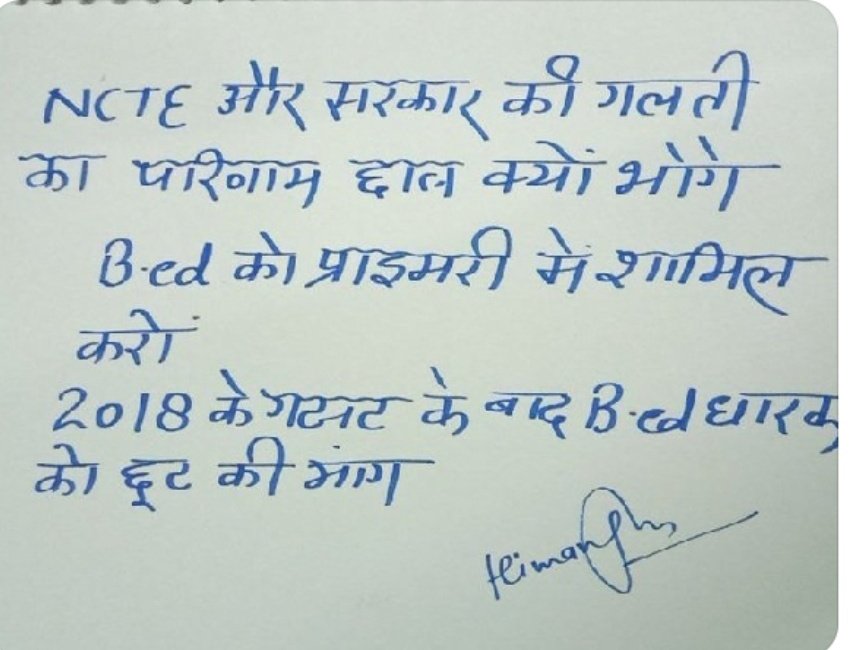 NCTE और सरकार की गलती
का परिणाम छाल क्यों भोगे
B.ed को प्राइमरी में शामिल
करों
2018 के गसट के बाद B.ed धारक
को छूट की मांग
Himanshu